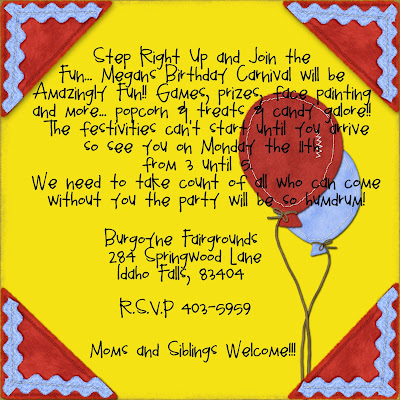 Step Right Up and Join the
Fun... Megans Birthday Carnival will be
Amazingly Fun!! Games, prizes, face painting
and more... popcorn & treats & candy galore!!
The festivities can't start until you arrive
so see you on Monday the 11th
from 3 until 5.
We need to take count of all who can come
without you the party will be so humdrum!
Burgoyne Fairgrounds
284 Springwood Lane
Idaho Falls, 83404
R.S.V.P 403-5959
Moms and Siblings Welcome!!!